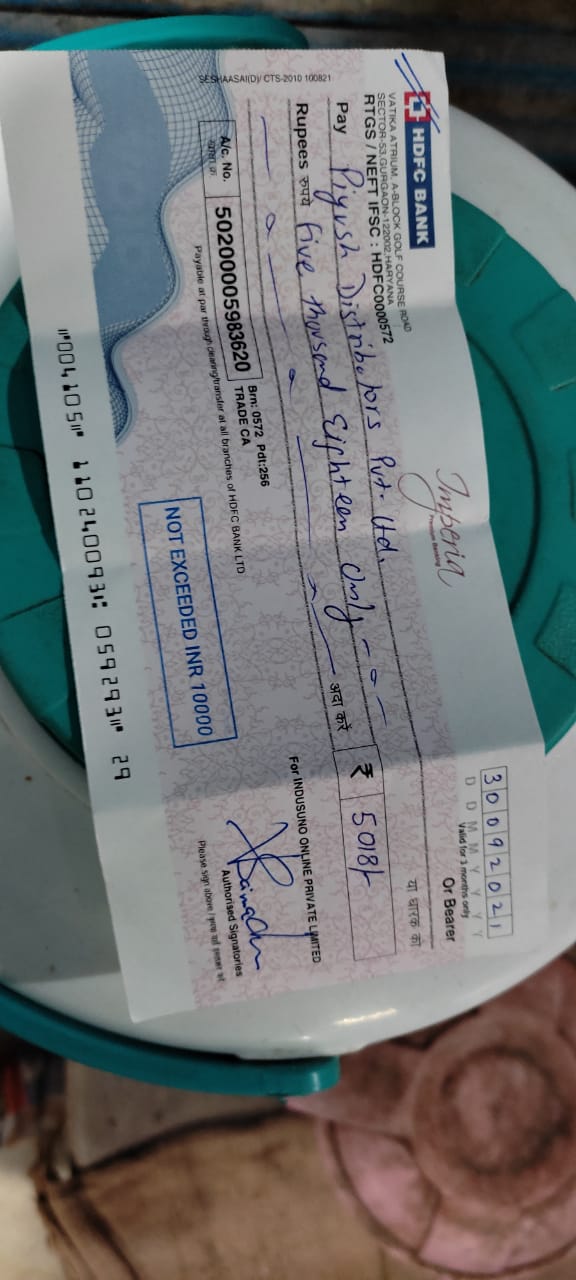 SESHAASAI(D)/ CTS-2010 100821
HDFC BANK
VATIKA ATRIUM, A-BLOCK GOLF COURSE ROAD
SECTOR-53, GURGAON-122002, HARYANA
RTGS / NEFT IFSC : HDFC0000572
Imperia
Premium Banking
30092021
D D M M Y Y Y Y
Valid for 3 months only
Pay Piyush Distributors Pvt. Ltd.
Or Bearer
या धारक को
Rupees रुपये Five thousand Eighteen Only
अदा करें
₹ 5018/-
A/c. No.
50200005983620
Brn: 0572 Pdt:256
TRADE CA
Payable at par through clearing/transfer at all branches of HDFC BANK LTD
For INDUSUNO ONLINE PRIVATE LIMITED
NOT EXCEEDED INR 10000
Authorised Signatories
Please sign above /
⑈004105⑈ 110240093⑆ 059293⑈ 29